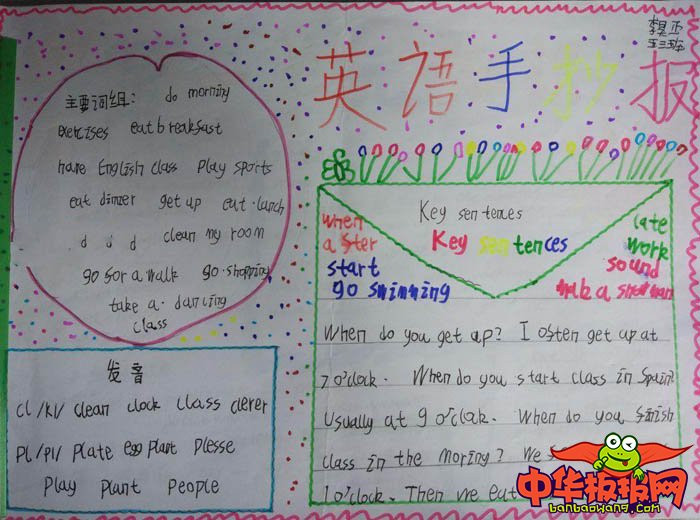 英语手抄报
五三班
主要词组: do morning
exercises eat breakfast
have English class play sports
eat dinner get up eat·lunch
clean my room
go for a walk go·shopping
take a·dancing
class
发音
cl /kl/ clean clock class clerer
pl /pl/ plate eggplant plesse
play plant people
Key sentences
Key sentences
when
after
start
go swimming
late
work
sound
make a snowman
When do you get up? I often get up at
7 o'clock. When do you start class in Spain?
Usually at 9 o'clock. When do you finish
class in the moring? We
1 o'clock. Then we eat
中华板报网
banbaowang.com